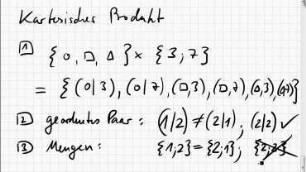 Kartesisches Produkt
1 {○, □, △} × {3; 7}
= {(○|3), (○|7), (□,3), (□,7), (△,3), (△,7)}
2 geordnetes Paar: (1|2) ≠ (2|1); (2|2) ✓
3 Mengen: {1;2} = {2;1}; {2;2}